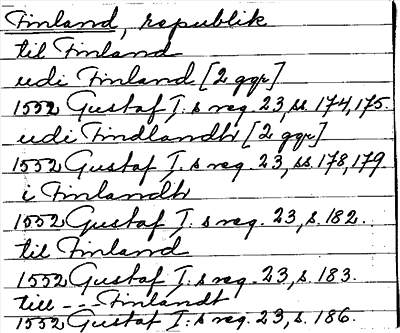 Finland, republik
til Finland
udi Finland [2 ggr]
1552 Gustaf I:s reg. 23, ss. 174, 175.
udi Findlandh [2 ggr]
1552 Gustaf I:s reg. 23, ss. 178, 179
i Finlandh
1552 Gustaf I:s reg. 23, s. 182.
til Finland
1552 Gustaf I:s reg. 23, s. 183.
till --- Finlandt
1552 Gustaf I:s reg. 23, s. 186.